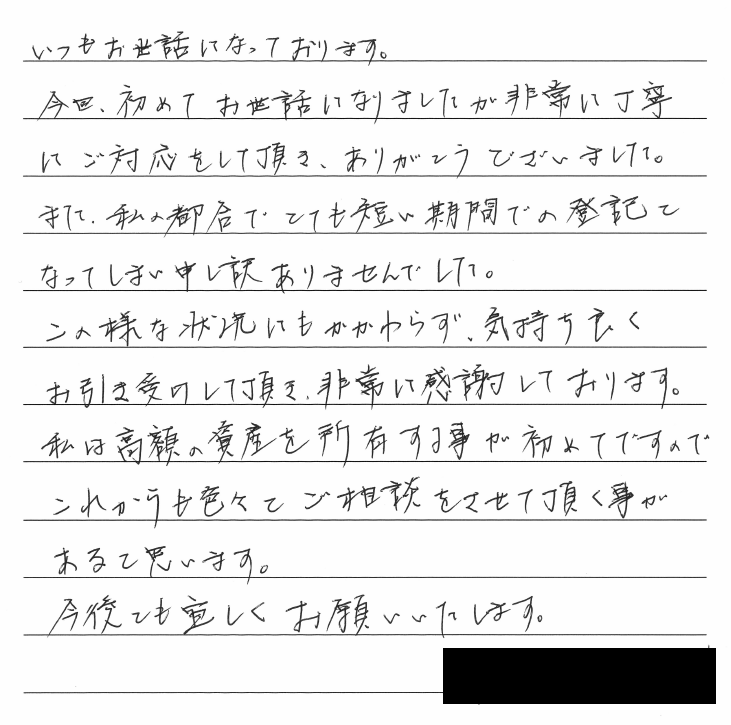 いつもお世話になっております。
今回、初めてお世話になりましたが非常に丁寧
にご対応をして頂き、ありがとうございました。
また、私の都合でとても短い期間での登記と
なってしまい申し訳ありませんでした。
この様な状況にもかかわらず、気持ち良く
お引き受けして頂き、非常に感謝しております。
私は高額の資産を所有する事が初めてですので
これからも色々とご相談をさせて頂く事が
あると思います。
今後とも宜しくお願いいたします。